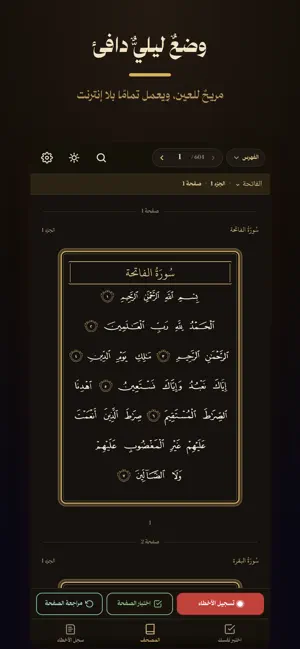 وضعٌ ليليٌّ دافئ
مريحٌ للعين، ويعمل تمامًا بلا إنترنت
الفهرس
1 / 604
الفاتحة · الجزء 1 · صفحة 1
صفحة 1
سُورَةُ الفَاتحة
الجزء 1
سُورَةُ الفَاتحة
بِسۡمِ ٱللَّهِ ٱلرَّحۡمَٰنِ ٱلرَّحِيمِ ١
ٱلۡحَمۡدُ لِلَّهِ رَبِّ ٱلۡعَٰلَمِينَ ٢
ٱلرَّحۡمَٰنِ ٱلرَّحِيمِ ٣ مَٰلِكِ يَوۡمِ ٱلدِّينِ ٤
إِيَّاكَ نَعۡبُدُ وَإِيَّاكَ نَسۡتَعِينُ ٥ ٱهۡدِنَا
ٱلصِّرَٰطَ ٱلۡمُسۡتَقِيمَ ٦ صِرَٰطَ ٱلَّذِينَ أَنۡعَمۡتَ
عَلَيۡهِمۡ غَيۡرِ ٱلۡمَغۡضُوبِ عَلَيۡهِمۡ
وَلَا ٱلضَّآلِّينَ ٧
1
صفحة 2
سُورَةُ البَقَرَة
الجزء 1
تسجيل الأخطاء
اختبار الصفحة
مراجعة الصفحة
اختبر نفسك
المصحف
سجل الأخطاء